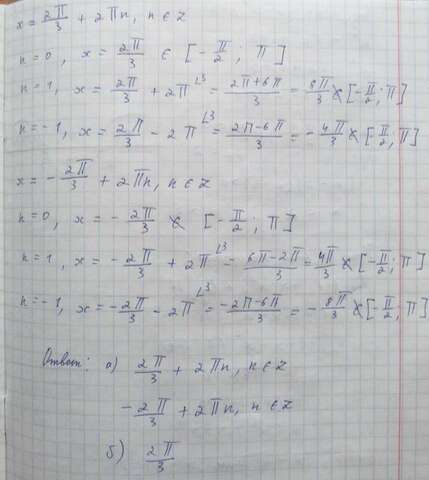 x = 2π/3 + 2πn, n ∈ Z
n=0, x = 2π/3 ∈ [-π/2; π]
n=1, x = 2π/3 + 2π^{∟3} = (2π+6π)/3 = 8π/3 ∉ [-π/2; π]
n=-1, x = 2π/3 - 2π^{∟3} = (2π-6π)/3 = -4π/3 ∉ [-π/2; π]
x = -2π/3 + 2πn, n ∈ Z
n=0, x = -2π/3 ∉ [-π/2; π]
n=1, x = -2π/3 + 2π^{∟3} = (6π-2π)/3 = 4π/3 ∉ [-π/2; π]
n=-1, x = -2π/3 - 2π^{∟3} = (-2π-6π)/3 = -8π/3 ∉ [-π/2; π]
Ответ: а) 2π/3 + 2πn, n ∈ Z
-2π/3 + 2πn, n ∈ Z
б) 2π/3